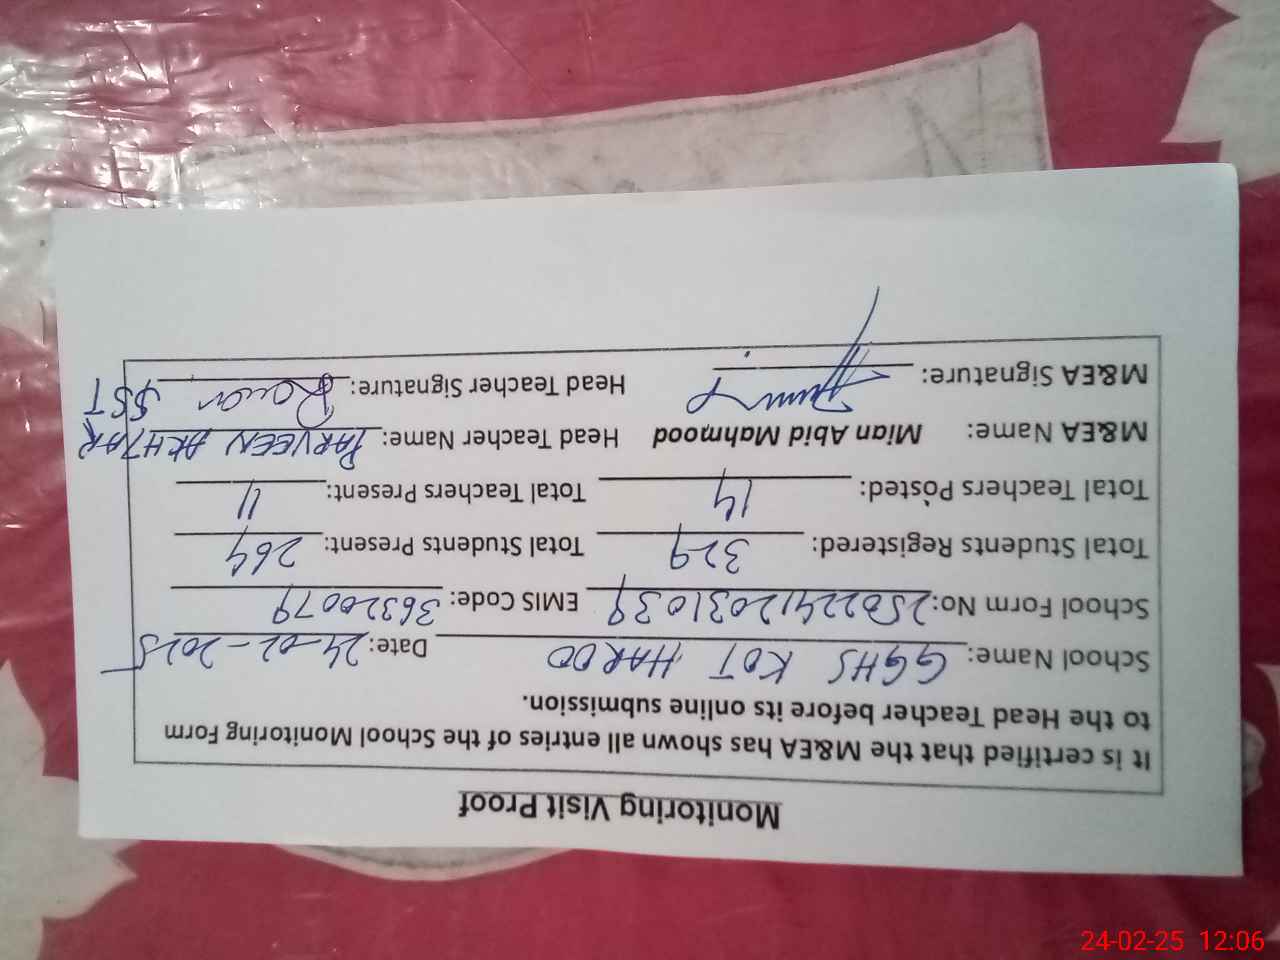 Monitoring Visit Proof
It is certified that the M&EA has shown all entries of the School Monitoring Form
to the Head Teacher before its online submission.
School Name: GGHS KOT HAROO Date: 24-02-2025
School Form No: 25022412031039 EMIS Code: 36320079
Total Students Registered: 329 Total Students Present: 264
Total Teachers Posted: 14 Total Teachers Present: 11
M&EA Name: Mian Abid Mahmood Head Teacher Name: PARVEEN AKHTAR
M&EA Signature: Head Teacher Signature: SST
24-02-25 12:06